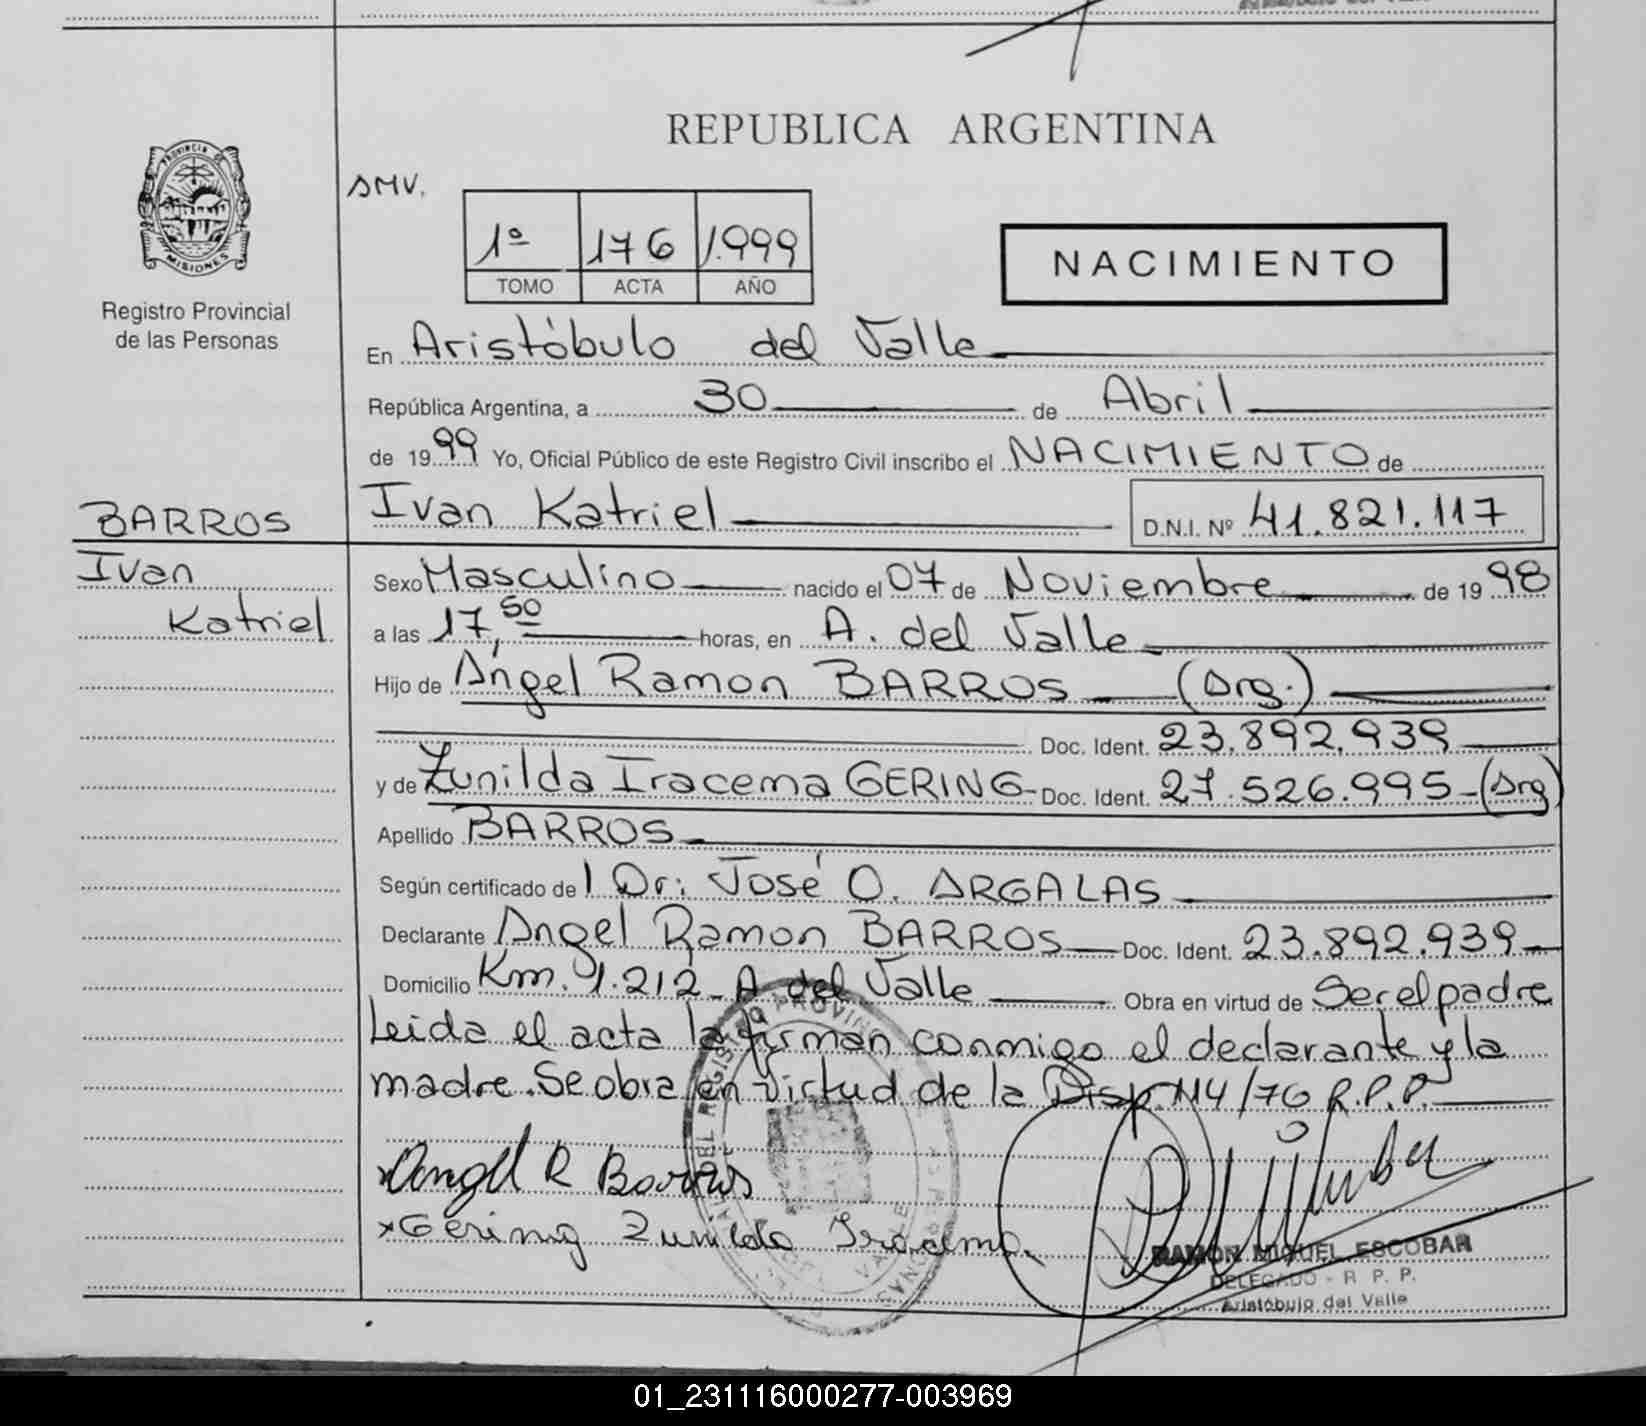 REPUBLICA ARGENTINA
PROVINCIA DE
MISIONES
Registro Provincial
de las Personas
SMV.
1º 176 1.999
TOMO ACTA AÑO
NACIMIENTO
En Aristóbulo del Valle
República Argentina, a 30 de Abril
de 1999 Yo, Oficial Público de este Registro Civil inscribo el NACIMIENTO de
BARROS
Ivan Katriel
Ivan Katriel D.N.I. Nº 41.821.117
Sexo Masculino nacido el 07 de Noviembre de 1998
a las 17,50 horas, en A. del Valle
Hijo de Angel Ramon BARROS (Arg.)
Doc. Ident. 23.892.939
y de Zunilda Iracema GERING Doc. Ident. 27.526.995 (Arg)
Apellido BARROS
Según certificado del Dr: José O. ARGALAS
Declarante Angel Ramon BARROS Doc. Ident. 23.892.939
Domicilio Km. 1.212 A del Valle Obra en virtud de Ser el padre
Leida el acta la firman conmigo el declarante y la
madre. Se obra en virtud de la Disp. 114/76 R.P.P.
Angel R Barros
Gering Zunilda Iracema.
RAMON MIGUEL ESCOBAR
DELEGADO - R. P. P.
Aristóbulo del Valle
01_231116000277-003969